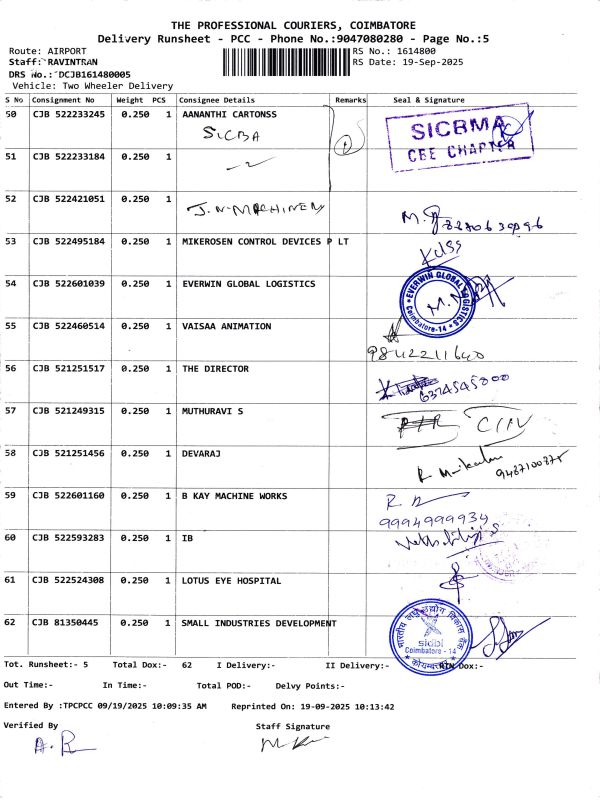 THE PROFESSIONAL COURIERS, COIMBATORE
Delivery Runsheet - PCC - Phone No.:9047080280 - Page No.:5
Route: AIRPORT RS No.: 1614800
Staff: RAVINTRAN RS Date: 19-Sep-2025
DRS No.: DCJB161480005
Vehicle: Two Wheeler Delivery
S No Consignment No Weight PCS Consignee Details Remarks Seal & Signature
50 CJB 522233245 0.250 1 AANANTHI CARTONSS
SICBA
SICBMA
CBE CHAPTER
51 CJB 522233184 0.250 1
52 CJB 522421051 0.250 1
J.N-MACHINERY
53 CJB 522495184 0.250 1 MIKEROSEN CONTROL DEVICES P LT
54 CJB 522601039 0.250 1 EVERWIN GLOBAL LOGISTICS
EVERWIN GLOBAL LOGISTICS
Coimbatore-14
55 CJB 522460514 0.250 1 VAISAA ANIMATION
9842211640
56 CJB 521251517 0.250 1 THE DIRECTOR
6374545000
57 CJB 521249315 0.250 1 MUTHURAVI S
58 CJB 521251456 0.250 1 DEVARAJ
59 CJB 522601160 0.250 1 B KAY MACHINE WORKS
9994999934
60 CJB 522593283 0.250 1 IB
61 CJB 522524308 0.250 1 LOTUS EYE HOSPITAL
62 CJB 81350445 0.250 1 SMALL INDUSTRIES DEVELOPMENT
भारतीय लघु उद्योग विकास बैंक
sidbi
Coimbatore - 14
कोयम्बत्तूर
Tot. Runsheet:- 5 Total Dox:- 62 I Delivery:- II Delivery:- RTN Dox:-
Out Time:- In Time:- Total POD:- Delvy Points:-
Entered By :TPCPCC 09/19/2025 10:09:35 AM Reprinted On: 19-09-2025 10:13:42
Verified By Staff Signature